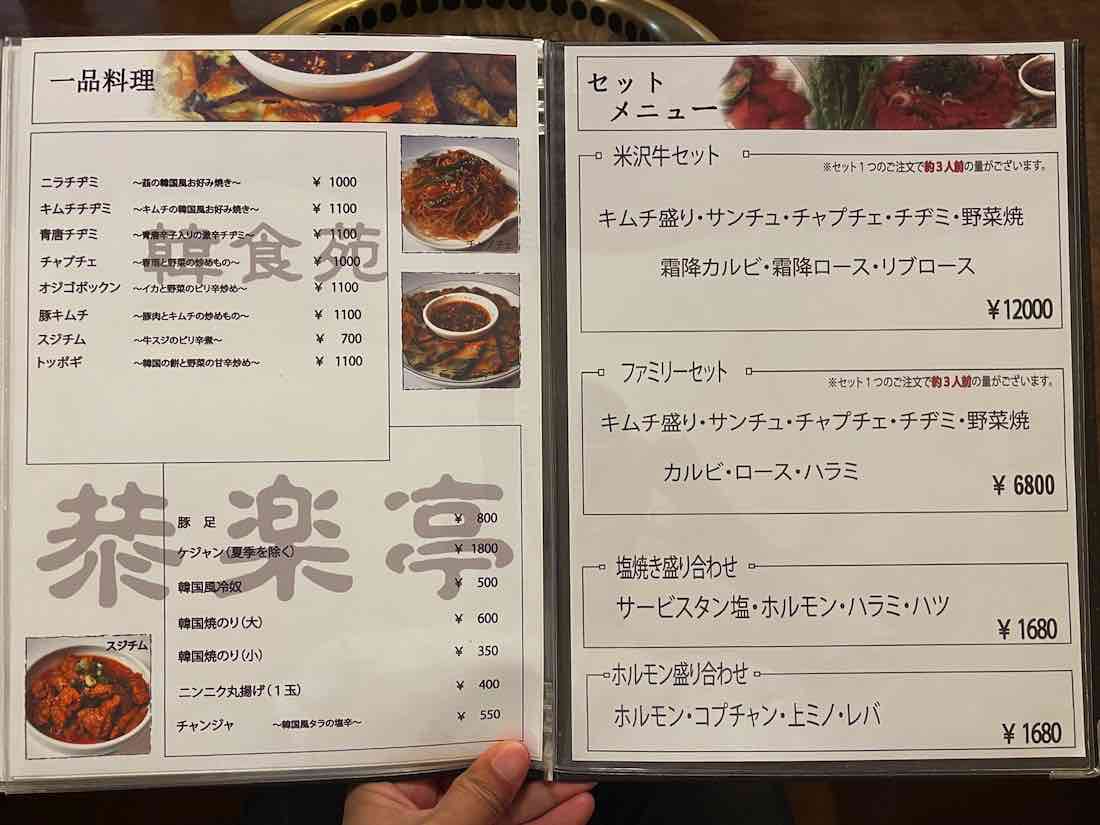 一品料理
ニラチヂミ ～韮の韓国風お好み焼き～ ¥ 1000
キムチチヂミ ～キムチの韓国風お好み焼き～ ¥ 1100
青唐チヂミ ～青唐辛子入りの激辛チヂミ～ ¥ 1100
チャプチェ ～春雨と野菜の炒めもの～ ¥ 1000
オジゴボックン ～イカと野菜のピリ辛炒め～ ¥ 1100
豚キムチ ～豚肉とキムチの炒めもの～ ¥ 1100
スジチム ～牛スジのピリ辛煮～ ¥ 700
トッポギ ～韓国の餅と野菜の甘辛炒め～ ¥ 1100
韓食苑
チャプチェ
恭楽亭
豚 足 ¥ 800
ケジャン（夏季を除く） ¥ 1800
韓国風冷奴 ¥ 500
韓国焼のり（大） ¥ 600
韓国焼のり（小） ¥ 350
ニンニク丸揚げ（1玉） ¥ 400
チャンジャ ～韓国風タラの塩辛～ ¥ 550
スジチム
セット
メニュー
米沢牛セット
※セット1つのご注文で約3人前の量がございます。
キムチ盛り・サンチュ・チャプチェ・チヂミ・野菜焼
霜降カルビ・霜降ロース・リブロース
¥12000
ファミリーセット
※セット1つのご注文で約3人前の量がございます。
キムチ盛り・サンチュ・チャプチェ・チヂミ・野菜焼
カルビ・ロース・ハラミ
¥ 6800
塩焼き盛り合わせ
サービスタン塩・ホルモン・ハラミ・ハツ
¥ 1680
ホルモン盛り合わせ
ホルモン・コプチャン・上ミノ・レバ
¥ 1680